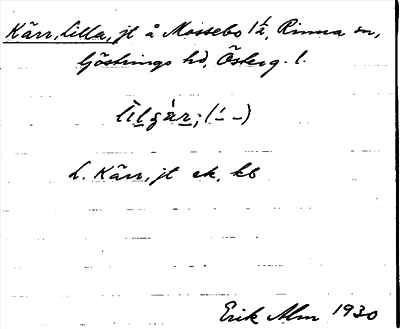 Kärr, Lilla, jt å Mossebo 1/2, Rinna sn,
Göstrings hd, Österg. l.
lìlgár; (´ -)
L. Kärr, jt ek, kb
Erik Alm 1930